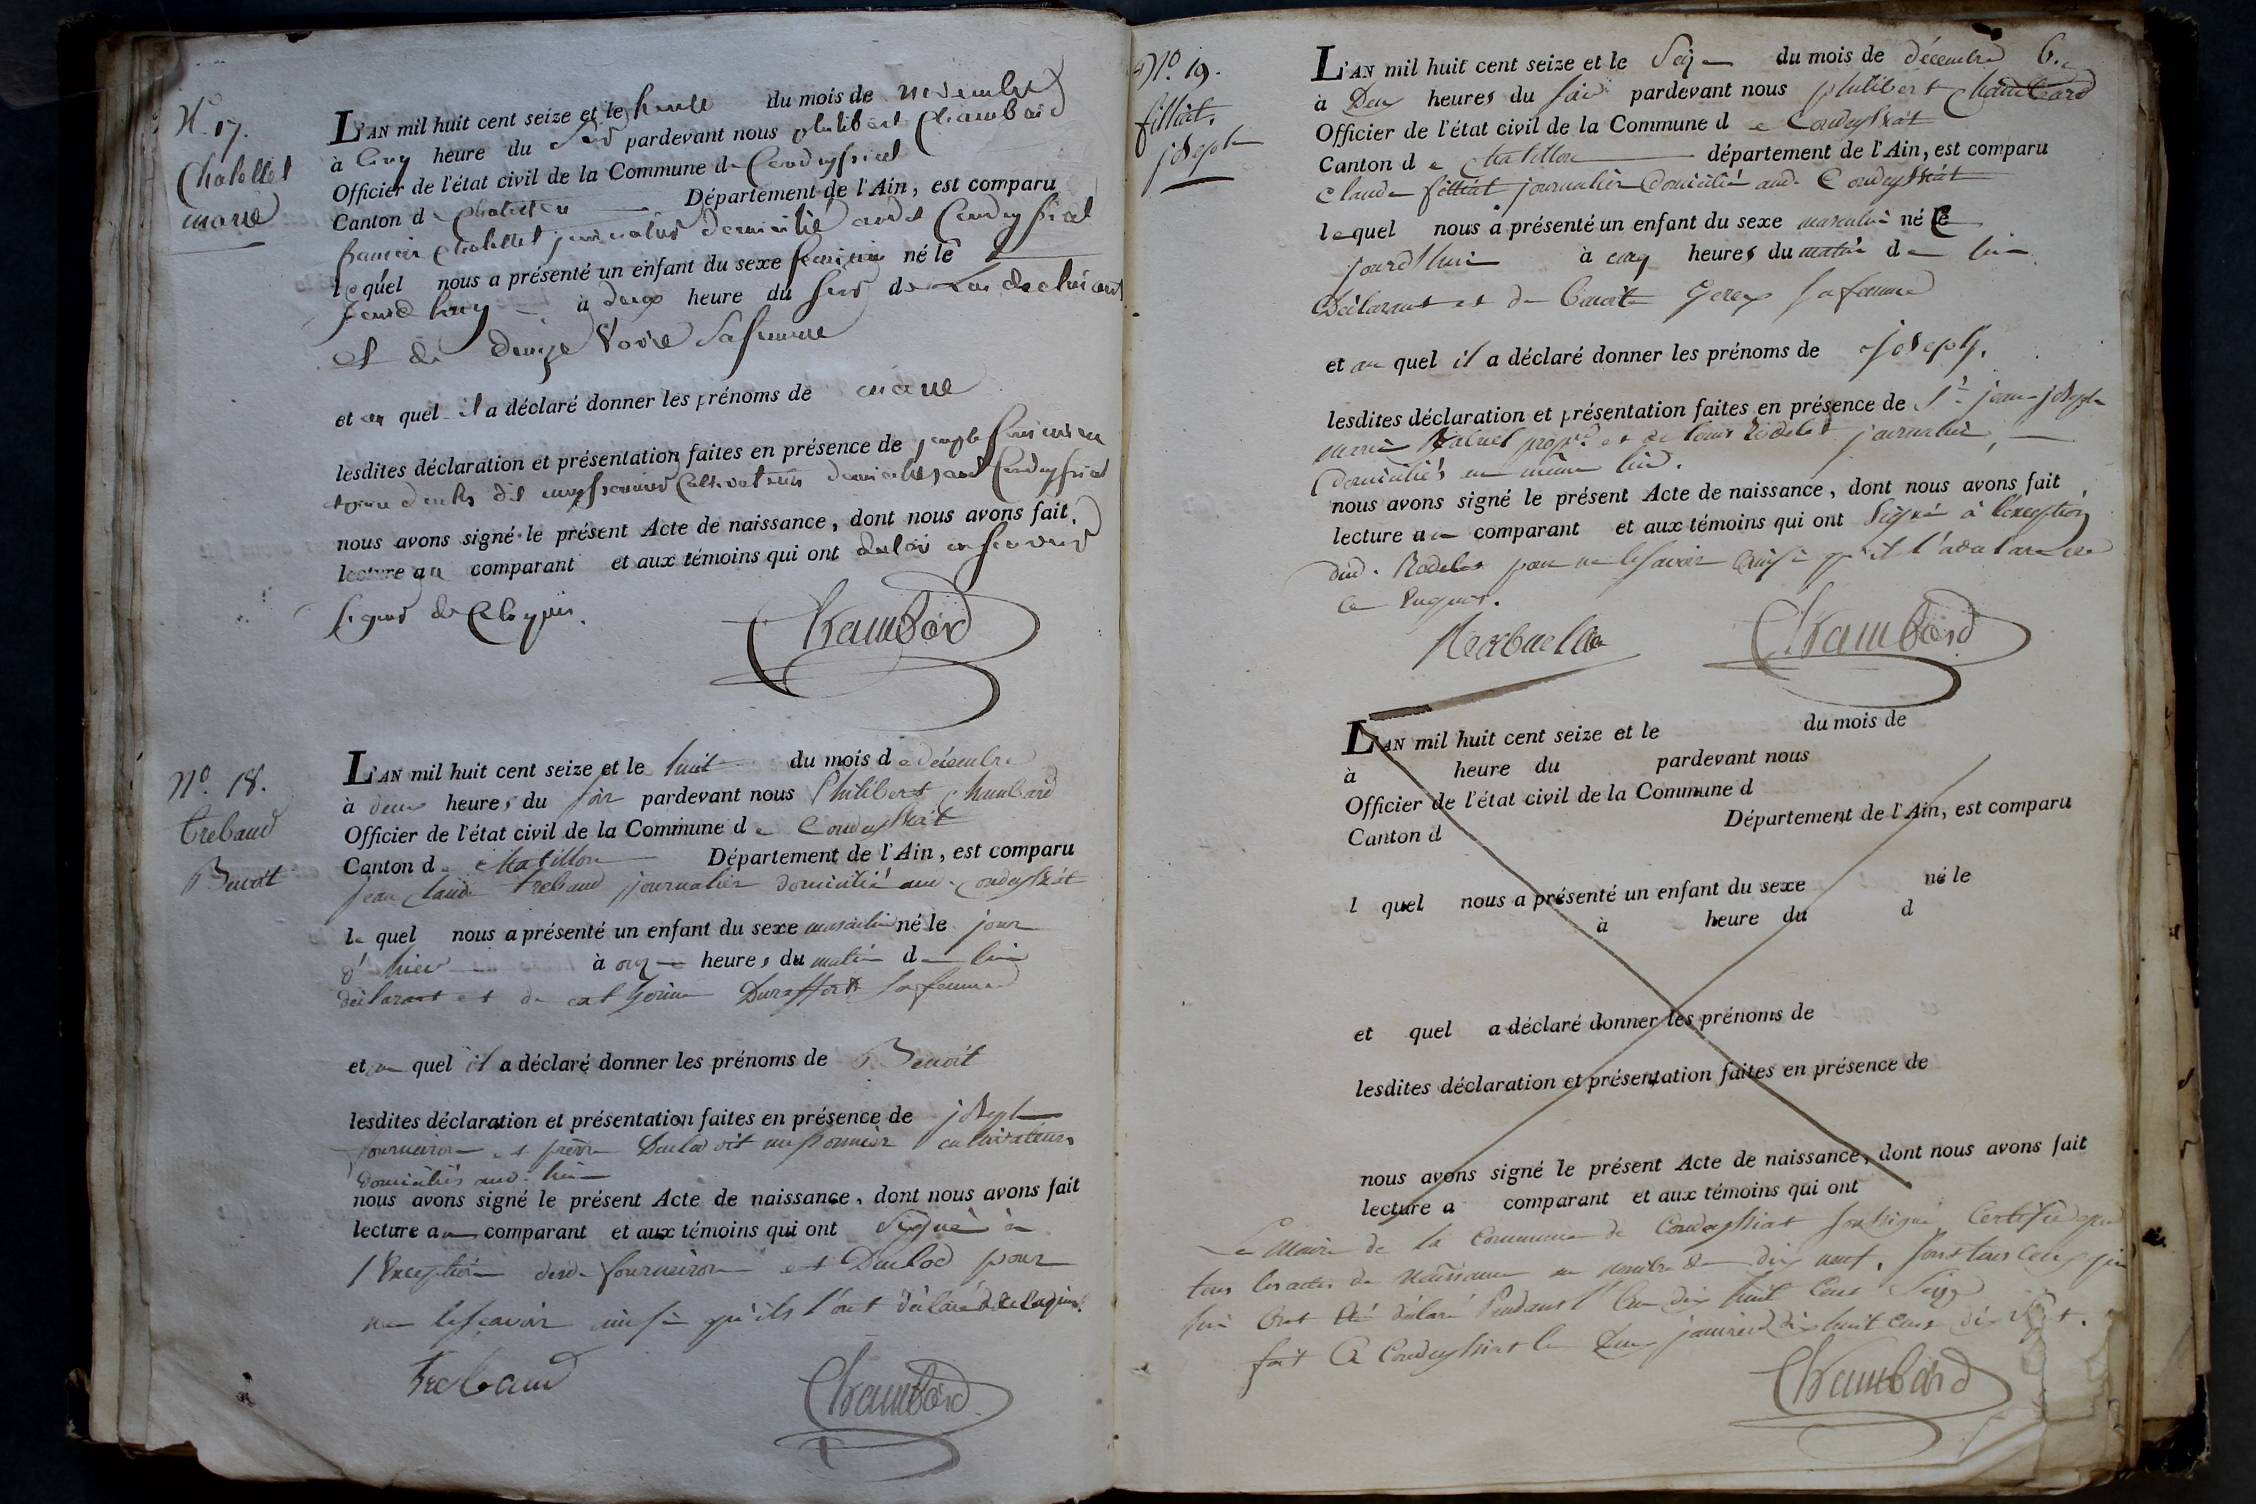 N.º 17.
Chatellet
marie
L'AN mil huit cent seize et le trente du mois de novembre
à cinq heure du soir pardevant nous philibert Chambard
Officier de l'état civil de la Commune de Condeyssiat
Canton de Chatillon Département de l'Ain, est comparu
francois Chatellet journalier domicilié audit Condeyssiat
lequel nous a présenté un enfant du sexe feminin né le
jourdhuy à deux heure du soir de lui declarant
et de denize Voire sa femme
et au quel il a déclaré donner les prénoms de marie
lesdites déclaration et présentation faites en présence de
dit cultivateurs domiciliés aud Condeyssiat
nous avons signé le présent Acte de naissance, dont nous avons fait
lecture au comparant et aux témoins qui ont
signer de ce requis.
Chambard
Nº. 18.
Trebaud
Benoit
L'AN mil huit cent seize et le huit du mois de décembre
à deux heures du soir pardevant nous Philibert Chambard
Officier de l'état civil de la Commune de Condeyssiat
Canton de chatillon Département de l'Ain, est comparu
jean claude trebaud journalier domicilié aud. Condeyssiat
lequel nous a présenté un enfant du sexe masculin né le jour
d'hier à onze heures du matin de lui
déclarant et de catherine Duraffort sa femme
et au quel il a déclaré donner les prénoms de Benoit
lesdites déclaration et présentation faites en présence de joseph
fourneiron et pierre Duclod dit cultivateurs
domiciliés aud. lieu
nous avons signé le présent Acte de naissance, dont nous avons fait
lecture au comparant et aux témoins qui ont signé à
l'exception desd. fourneiron et Duclod pour
ne le sçavoir ainsi qu'ils l'ont déclaré de ce enquis.
Trebaud
Chambard
Nº. 19.
filliat.
joseph
L'AN mil huit cent seize et le Seize du mois de décembre
à Deux heures du soir pardevant nous philibert Chambard
Officier de l'état civil de la Commune de Condeyssiat
Canton de chatillon département de l'Ain, est comparu
claude filliat journalier domicilié aud. Condeyssiat
lequel nous a présenté un enfant du sexe masculin né le
jourd'huis à cinq heures du matin de lui
Déclarant et de Benoite Gerex sa femme
et au quel il a déclaré donner les prénoms de joseph.
lesdites déclaration et présentation faites en présence de Sr. jean joseph
marie et de louis Rodelet journalier,
Domiciliés au même lieu.
nous avons signé le présent Acte de naissance, dont nous avons fait
lecture au comparant et aux témoins qui ont signé à l'exception
dud. Rodelet pour ne le savoir ainsi qu'il l'a déclaré de
ce enquis.
Chambard
L'AN mil huit cent seize et le du mois de
à heure du pardevant nous
Officier de l'état civil de la Commune d
Canton d Département de l'Ain, est comparu
l quel nous a présenté un enfant du sexe né le
à heure du d
et quel a déclaré donner les prénoms de
lesdites déclaration et présentation faites en présence de
nous avons signé le présent Acte de naissance, dont nous avons fait
lecture a comparant et aux témoins qui ont
Le Maire de la Commune de Condeyssiat soussigné, Certifie que
tous les actes de Naissance au nombre de dix neuf, sont tous ceux qui
lui ont été déclaré Pendant l'an dix huit cent Seize
fait à Condeyssiat le Deux janvier dix huit cent dix sept.
Chambard